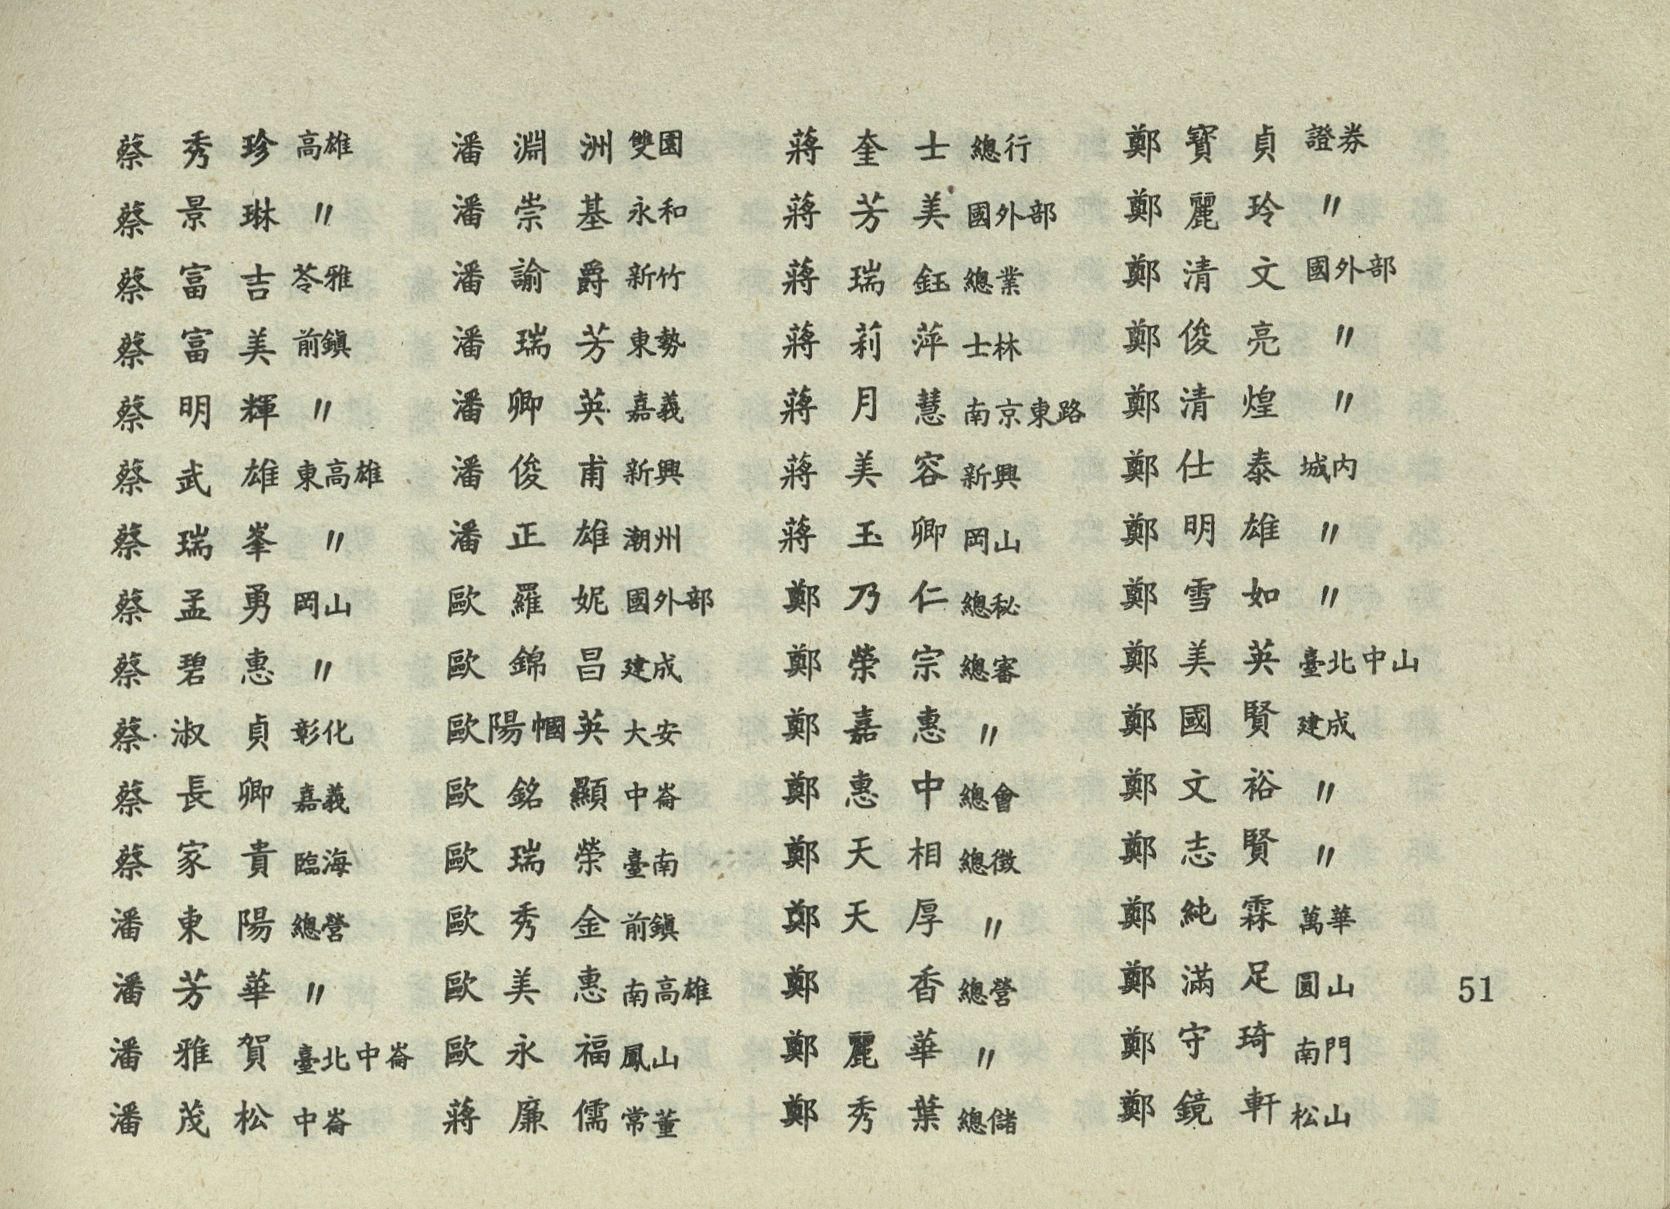 蔡秀珍 高雄
蔡景琳 〃
蔡富吉 苓雅
蔡富美 前鎮
蔡明輝 〃
蔡武雄 東高雄
蔡瑞峯 〃
蔡孟勇 岡山
蔡碧惠 〃
蔡淑貞 彰化
蔡長卿 嘉義
蔡家貴 臨海
潘東陽 總營
潘芳華 〃
潘雅賀 臺北中崙
潘茂松 中崙
潘淵洲 雙園
潘崇基 永和
潘諭爵 新竹
潘瑞芳 東勢
潘卿英 嘉義
潘俊甫 新興
潘正雄 潮州
歐羅妮 國外部
歐錦昌 建成
歐陽幗英 大安
歐銘顯 中崙
歐瑞榮 臺南
歐秀金 前鎮
歐美惠 南高雄
歐永福 鳳山
蔣廉儒 常董
蔣奎士 總行
蔣芳美 國外部
蔣瑞鈺 總業
蔣莉萍 士林
蔣月慧 南京東路
蔣美容 新興
蔣玉卿 岡山
鄭乃仁 總秘
鄭榮宗 總審
鄭嘉惠 〃
鄭惠中 總會
鄭天相 總徵
鄭天厚 〃
鄭香 總營
鄭麗華 〃
鄭秀葉 總儲
鄭寶貞 證券
鄭麗玲 〃
鄭清文 國外部
鄭俊亮 〃
鄭清煌 〃
鄭仕泰 城內
鄭明雄 〃
鄭雪如 〃
鄭美英 臺北中山
鄭國賢 建成
鄭文裕 〃
鄭志賢 〃
鄭純霖 萬華
鄭滿足 圓山
鄭守琦 南門
鄭鏡軒 松山
51